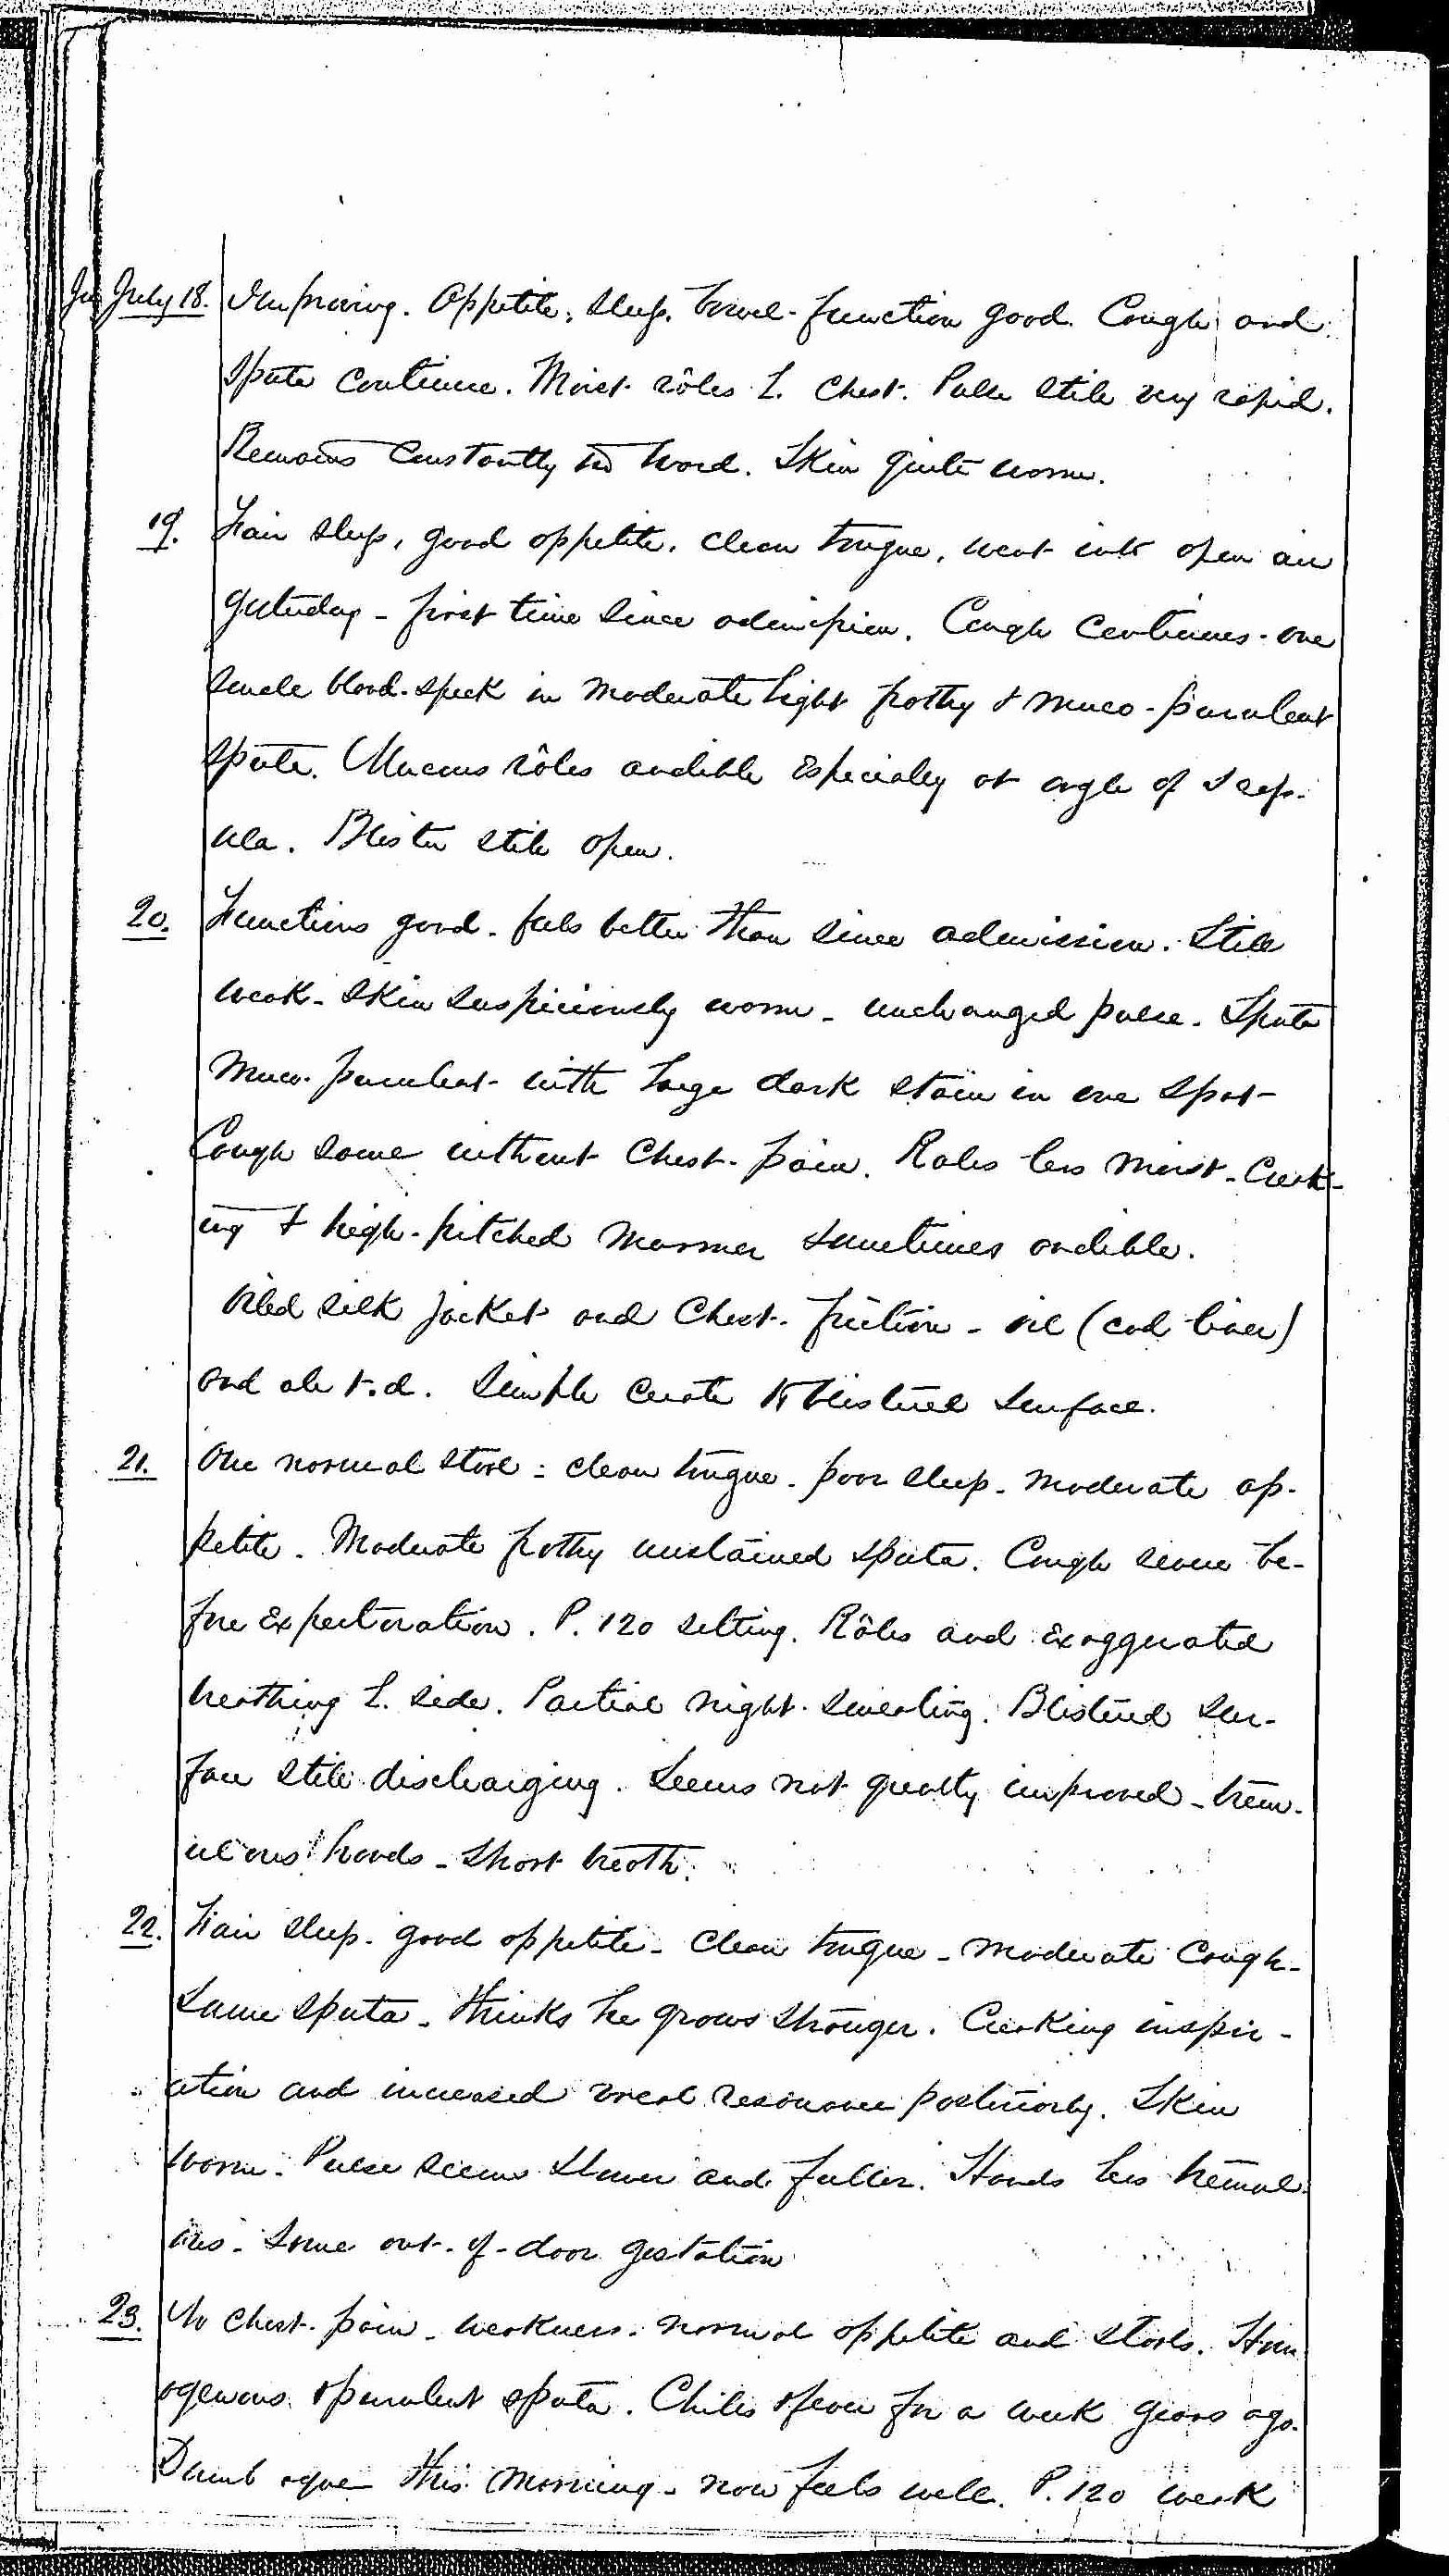 July 18. Improving. Appetite, sleep, bowel-function good. Cough and
sputa continue. Moist râles L. chest. Pulse still very rapid.
Remains constantly in ward. Skin quite warm.
19. Fair sleep, good appetite, clean tongue, went into open air
yesterday - first time since admission. Cough continues - one
single blood-speck in moderate light frothy & muco-purulent
sputa. Mucous râles audible especially at angle of scap-
ula. Blister still open.
20. Functions good - feels better than since admission. Still
weak - skin suspiciously warm - unchanged pulse. Sputa
muco-purulent with large dark stain in one spot -
Cough same without chest-pain. Rales less moist - creak-
ing & high-pitched murmur sometimes audible.
Oiled silk jacket and chest-friction - oil (cod liver)
and ale t.d. Simple cerate to blistered surface.
21. One normal stool: clean tongue - poor sleep - moderate ap-
petite. Moderate frothy unstained sputa. Cough severe be-
fore expectoration. P. 120 sitting. Râles and exaggerated
breathing L. side. Partial night-sweating. Blistered sur-
face still discharging. Seems not greatly improved - trem-
ulous hands - short breath.
22. Fair sleep - good appetite - clean tongue - moderate cough -
same sputa - thinks he grows stronger. Creaking inspir-
ation and increased vocal resonance posteriorly. Skin
warm. Pulse seems slower and fuller. Hands less tremul-
ous. Some out-of-door gestation
23. No chest-pain - weakness - normal appetite and stools. Hom-
ogeneous & purulent sputa. Chills & fever for a week years ago.
Dumb ague this morning - now feels well. P. 120 weak